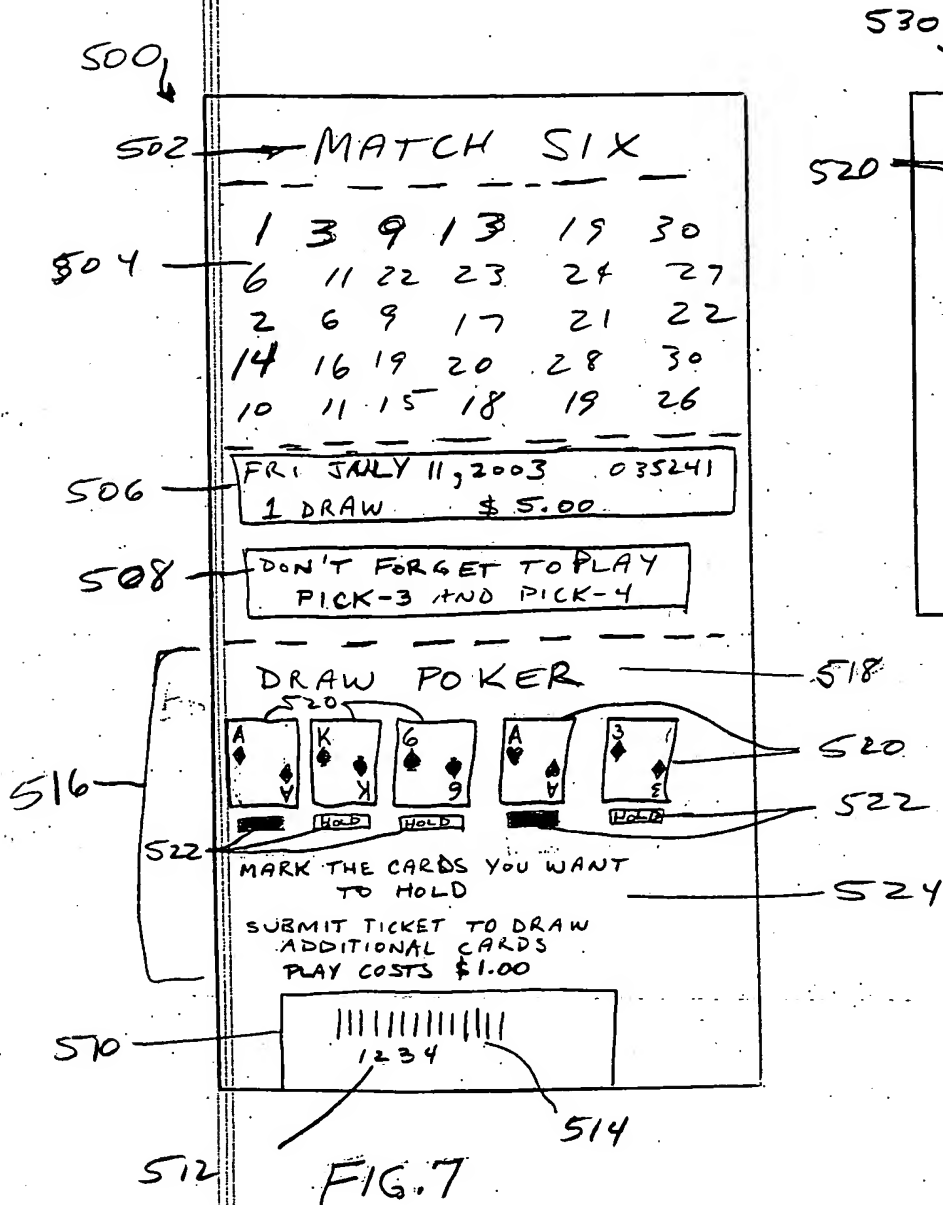 530
500
502 MATCH SIX
520
1 3 9 13 19 30
504 6 11 22 23 24 27
2 6 9 17 21 22
14 16 19 20 28 30
10 11 15 18 19 26
506 FRI JANLY 11, 2003 035241
1 DRAW $ 5.00
508 DON'T FORGET TO PLAY
PICK-3 AND PICK-4
DRAW POKER 518
520
A K 6 A 3
A K 6 A 3
520
516
HOLD HOLD HOLD 522
522
MARK THE CARDS YOU WANT
TO HOLD 524
SUBMIT TICKET TO DRAW
ADDITIONAL CARDS
PLAY COSTS $1.00
510
1234
514
512
FIG. 7